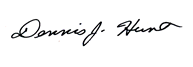 Dennis J. Hunt